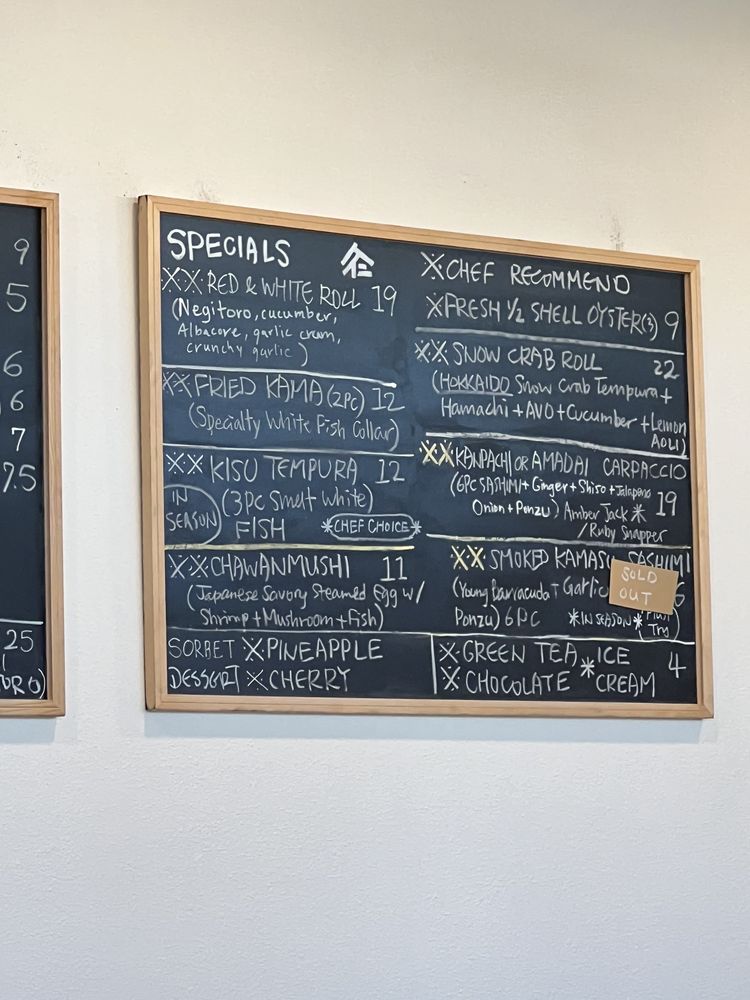 9
5
6
6
7
7.5
25
SPECIALS
※※ RED & WHITE ROLL 19
(Negitoro, cucumber,
Albacore, garlic cream,
crunchy garlic)
※※ FRIED KAMA (2PC) 12
(Specialty White Fish Collar)
※※ KISU TEMPURA 12
IN SEASON
(3pc Smelt White)
FISH
*CHEF CHOICE*
※※ CHAWANMUSHI 11
(Japanese Savory Steamed Egg w/
Shrimp + Mushroom + Fish)
SORBET ※ PINEAPPLE
DESSERT ※ CHERRY
※ CHEF RECOMMEND
※ FRESH 1/2 SHELL OYSTER(3) 9
※※ SNOW CRAB ROLL 22
(HOKKAIDO Snow Crab Tempura +
Hamachi + AVO + Cucumber + Lemon
AOLI)
※※ KANPACHI OR AMADAI CARPACCIO
(6PC SASHIMI + Ginger + Shiso + Jalapeno
Onion + Ponzu) Amber Jack * 19
/ Ruby Snapper
※※ SMOKED KAMASU SASHIMI
SOLD
OUT
(Young Barracuda + Garlic
Ponzu) 6PC *IN SEASON* Must
Try
※ GREEN TEA * ICE 4
※ CHOCOLATE CREAM